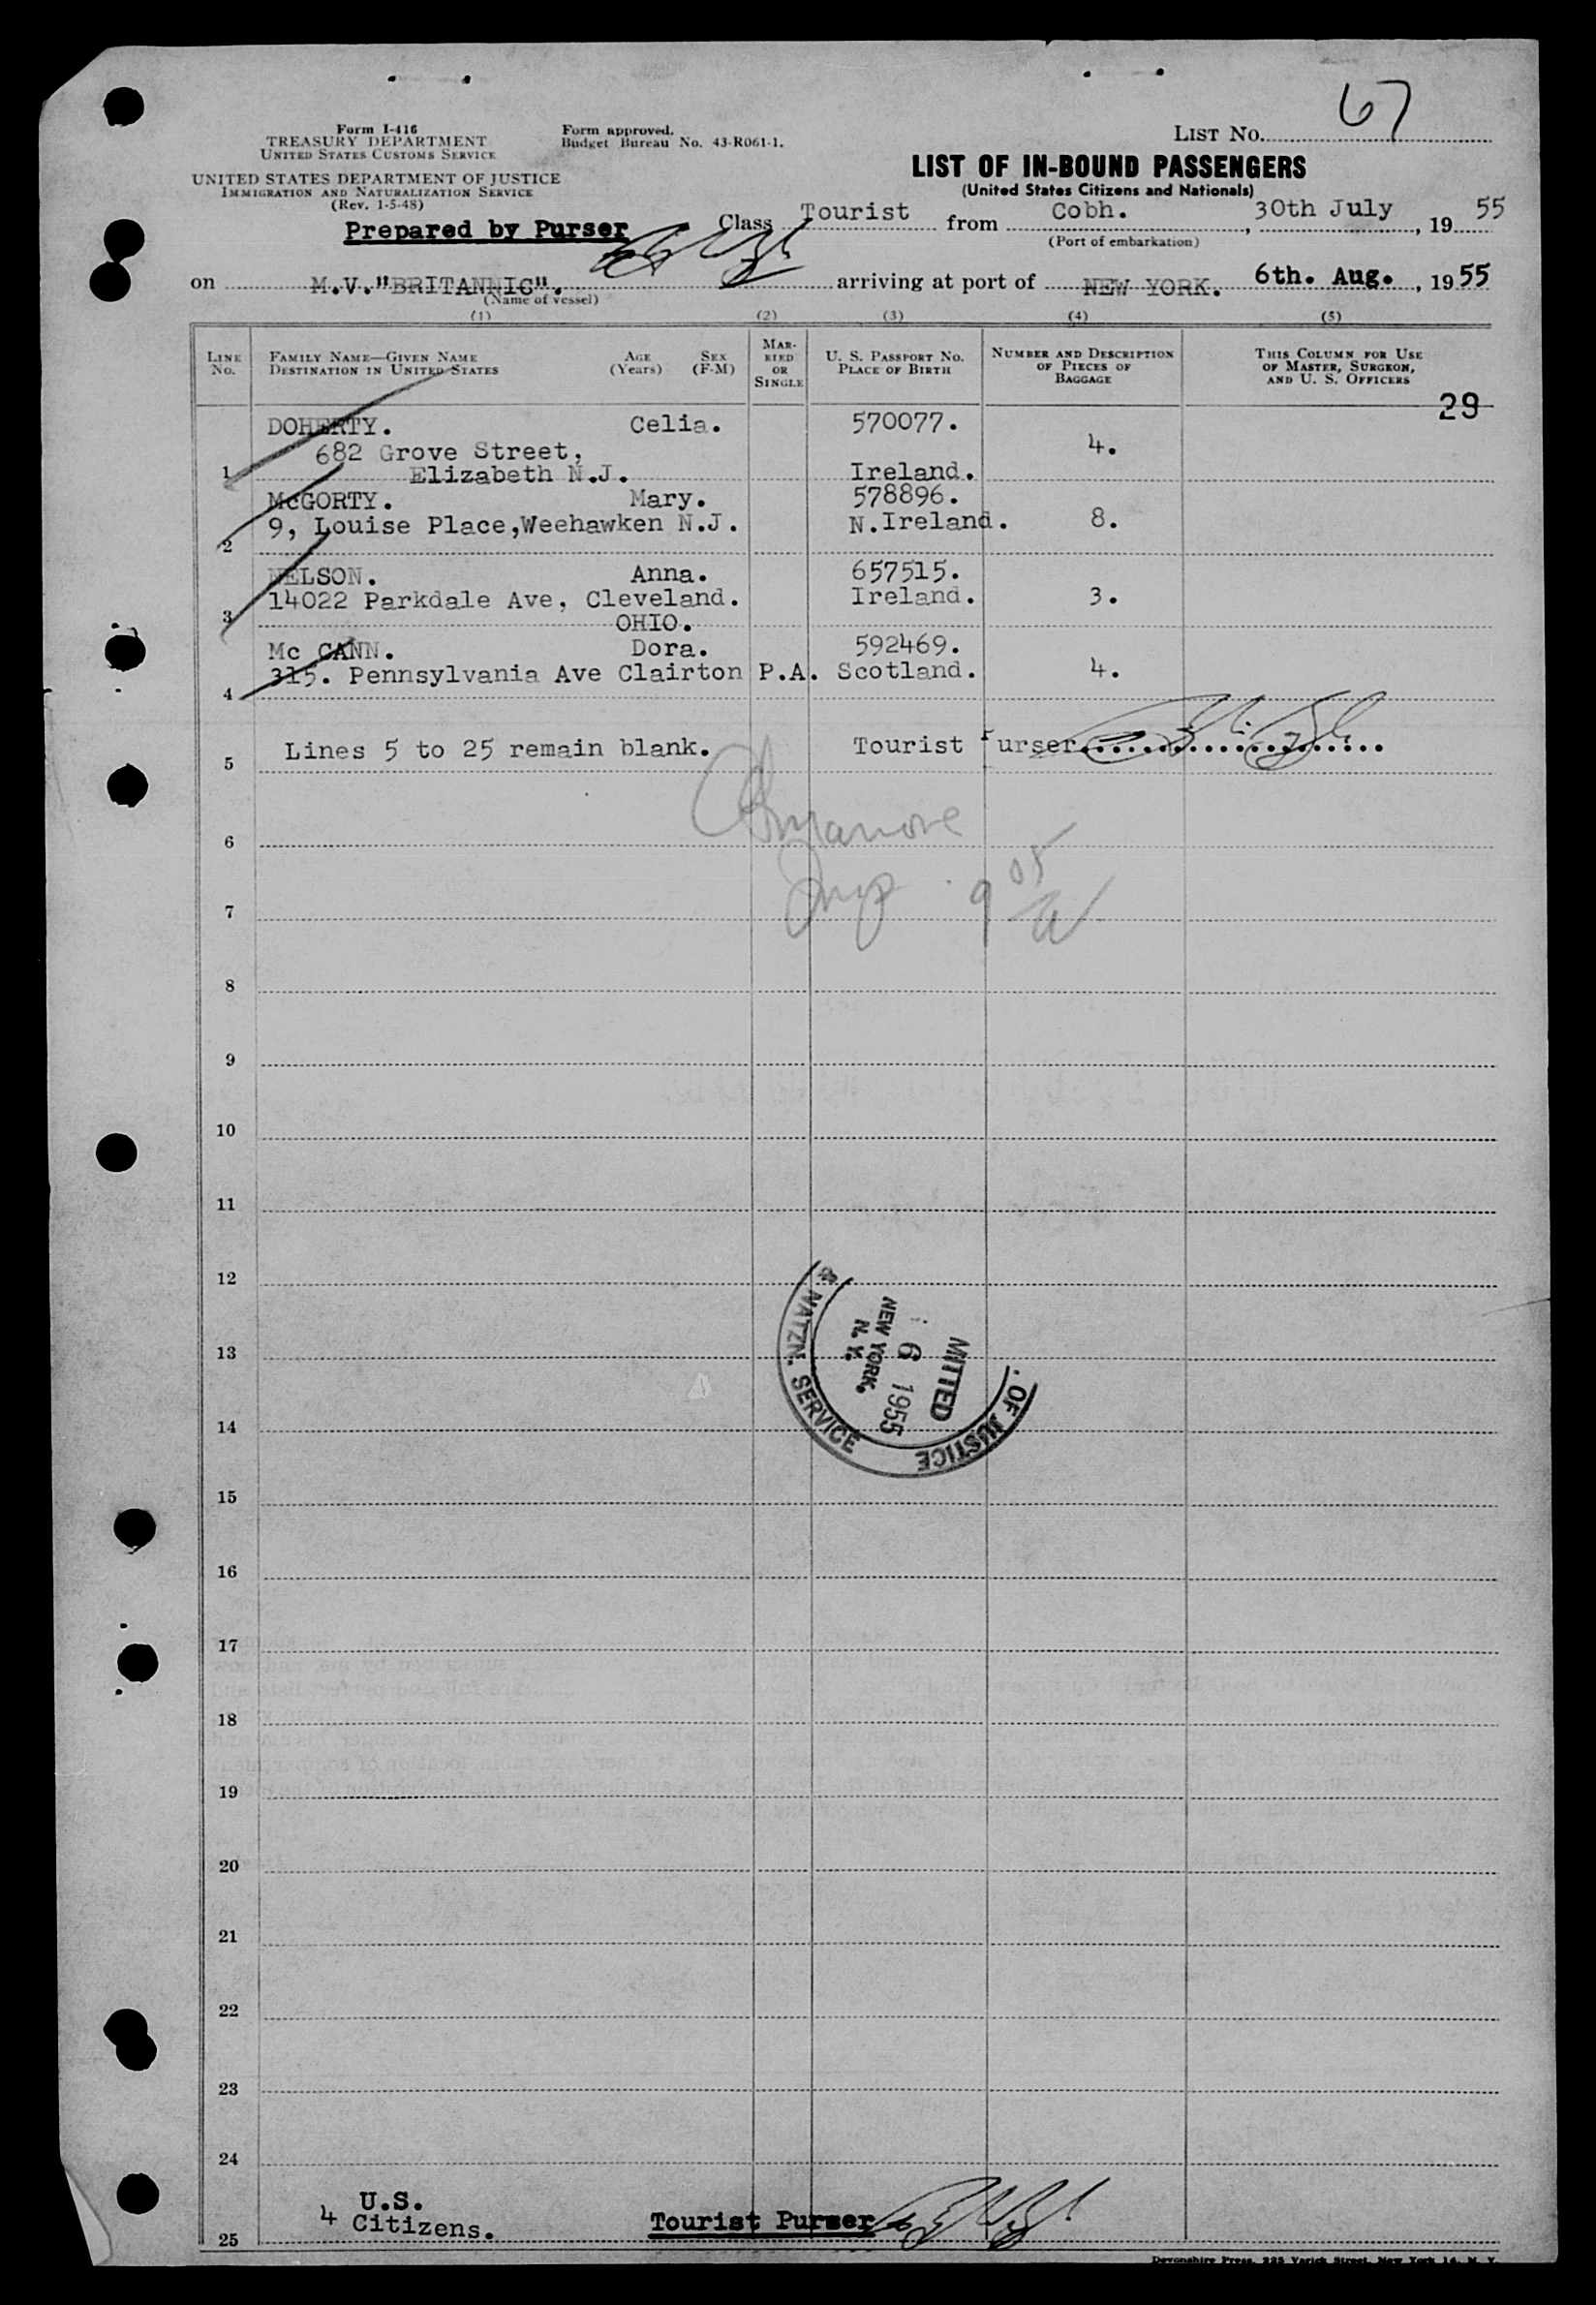 67
Form I-416
TREASURY DEPARTMENT
UNITED STATES CUSTOMS SERVICE
Form approved.
Budget Bureau No. 43-R061-1.
LIST NO.
UNITED STATES DEPARTMENT OF JUSTICE
IMMIGRATION AND NATURALIZATION SERVICE
(Rev. 1-5-48)
LIST OF IN-BOUND PASSENGERS
(United States Citizens and Nationals)
Prepared by Purser
Class Tourist from Cobh. , 30th July , 19 55
(Port of embarkation)
on M.V."BRITANNIC". arriving at port of NEW YORK. 6th. Aug. , 19 55
(Name of vessel)
(1) (2) (3) (4) (5)
LINE NO.
FAMILY NAME—GIVEN NAME
DESTINATION IN UNITED STATES
AGE (Years)
SEX (F-M)
MARRIED OR SINGLE
U. S. PASSPORT NO.
PLACE OF BIRTH
NUMBER AND DESCRIPTION
OF PIECES OF
BAGGAGE
THIS COLUMN FOR USE
OF MASTER, SURGEON,
AND U. S. OFFICERS
29
DOHERTY. Celia. 570077.
682 Grove Street, 4.
1 Elizabeth N.J. Ireland.
McGORTY. Mary. 578896.
9, Louise Place,Weehawken N.J. N.Ireland. 8.
2
NELSON. Anna. 657515.
14022 Parkdale Ave, Cleveland. Ireland. 3.
3 OHIO.
Mc CANN. Dora. 592469.
315. Pennsylvania Ave Clairton P.A. Scotland. 4.
4
Lines 5 to 25 remain blank. Tourist Purser
5
6
Insp 9 05/a
7
8
9
10
11
12
13
14
& NATZN. SERVICE
OF JUSTICE
MITTED
6 1955
NEW YORK.
N. Y.
15
16
17
18
19
20
21
22
23
24
4 U.S.
Citizens.
Tourist Purser
25
Devonshire Press, 225 Varick Street, New York 14, N. Y.